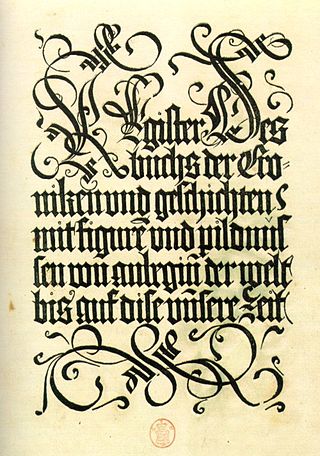 REgister Des
buchs der Cro-
niken und geschichten
mit figurē und pildnus
sen von anbegin der welt
bis auf dise unsere Zeit